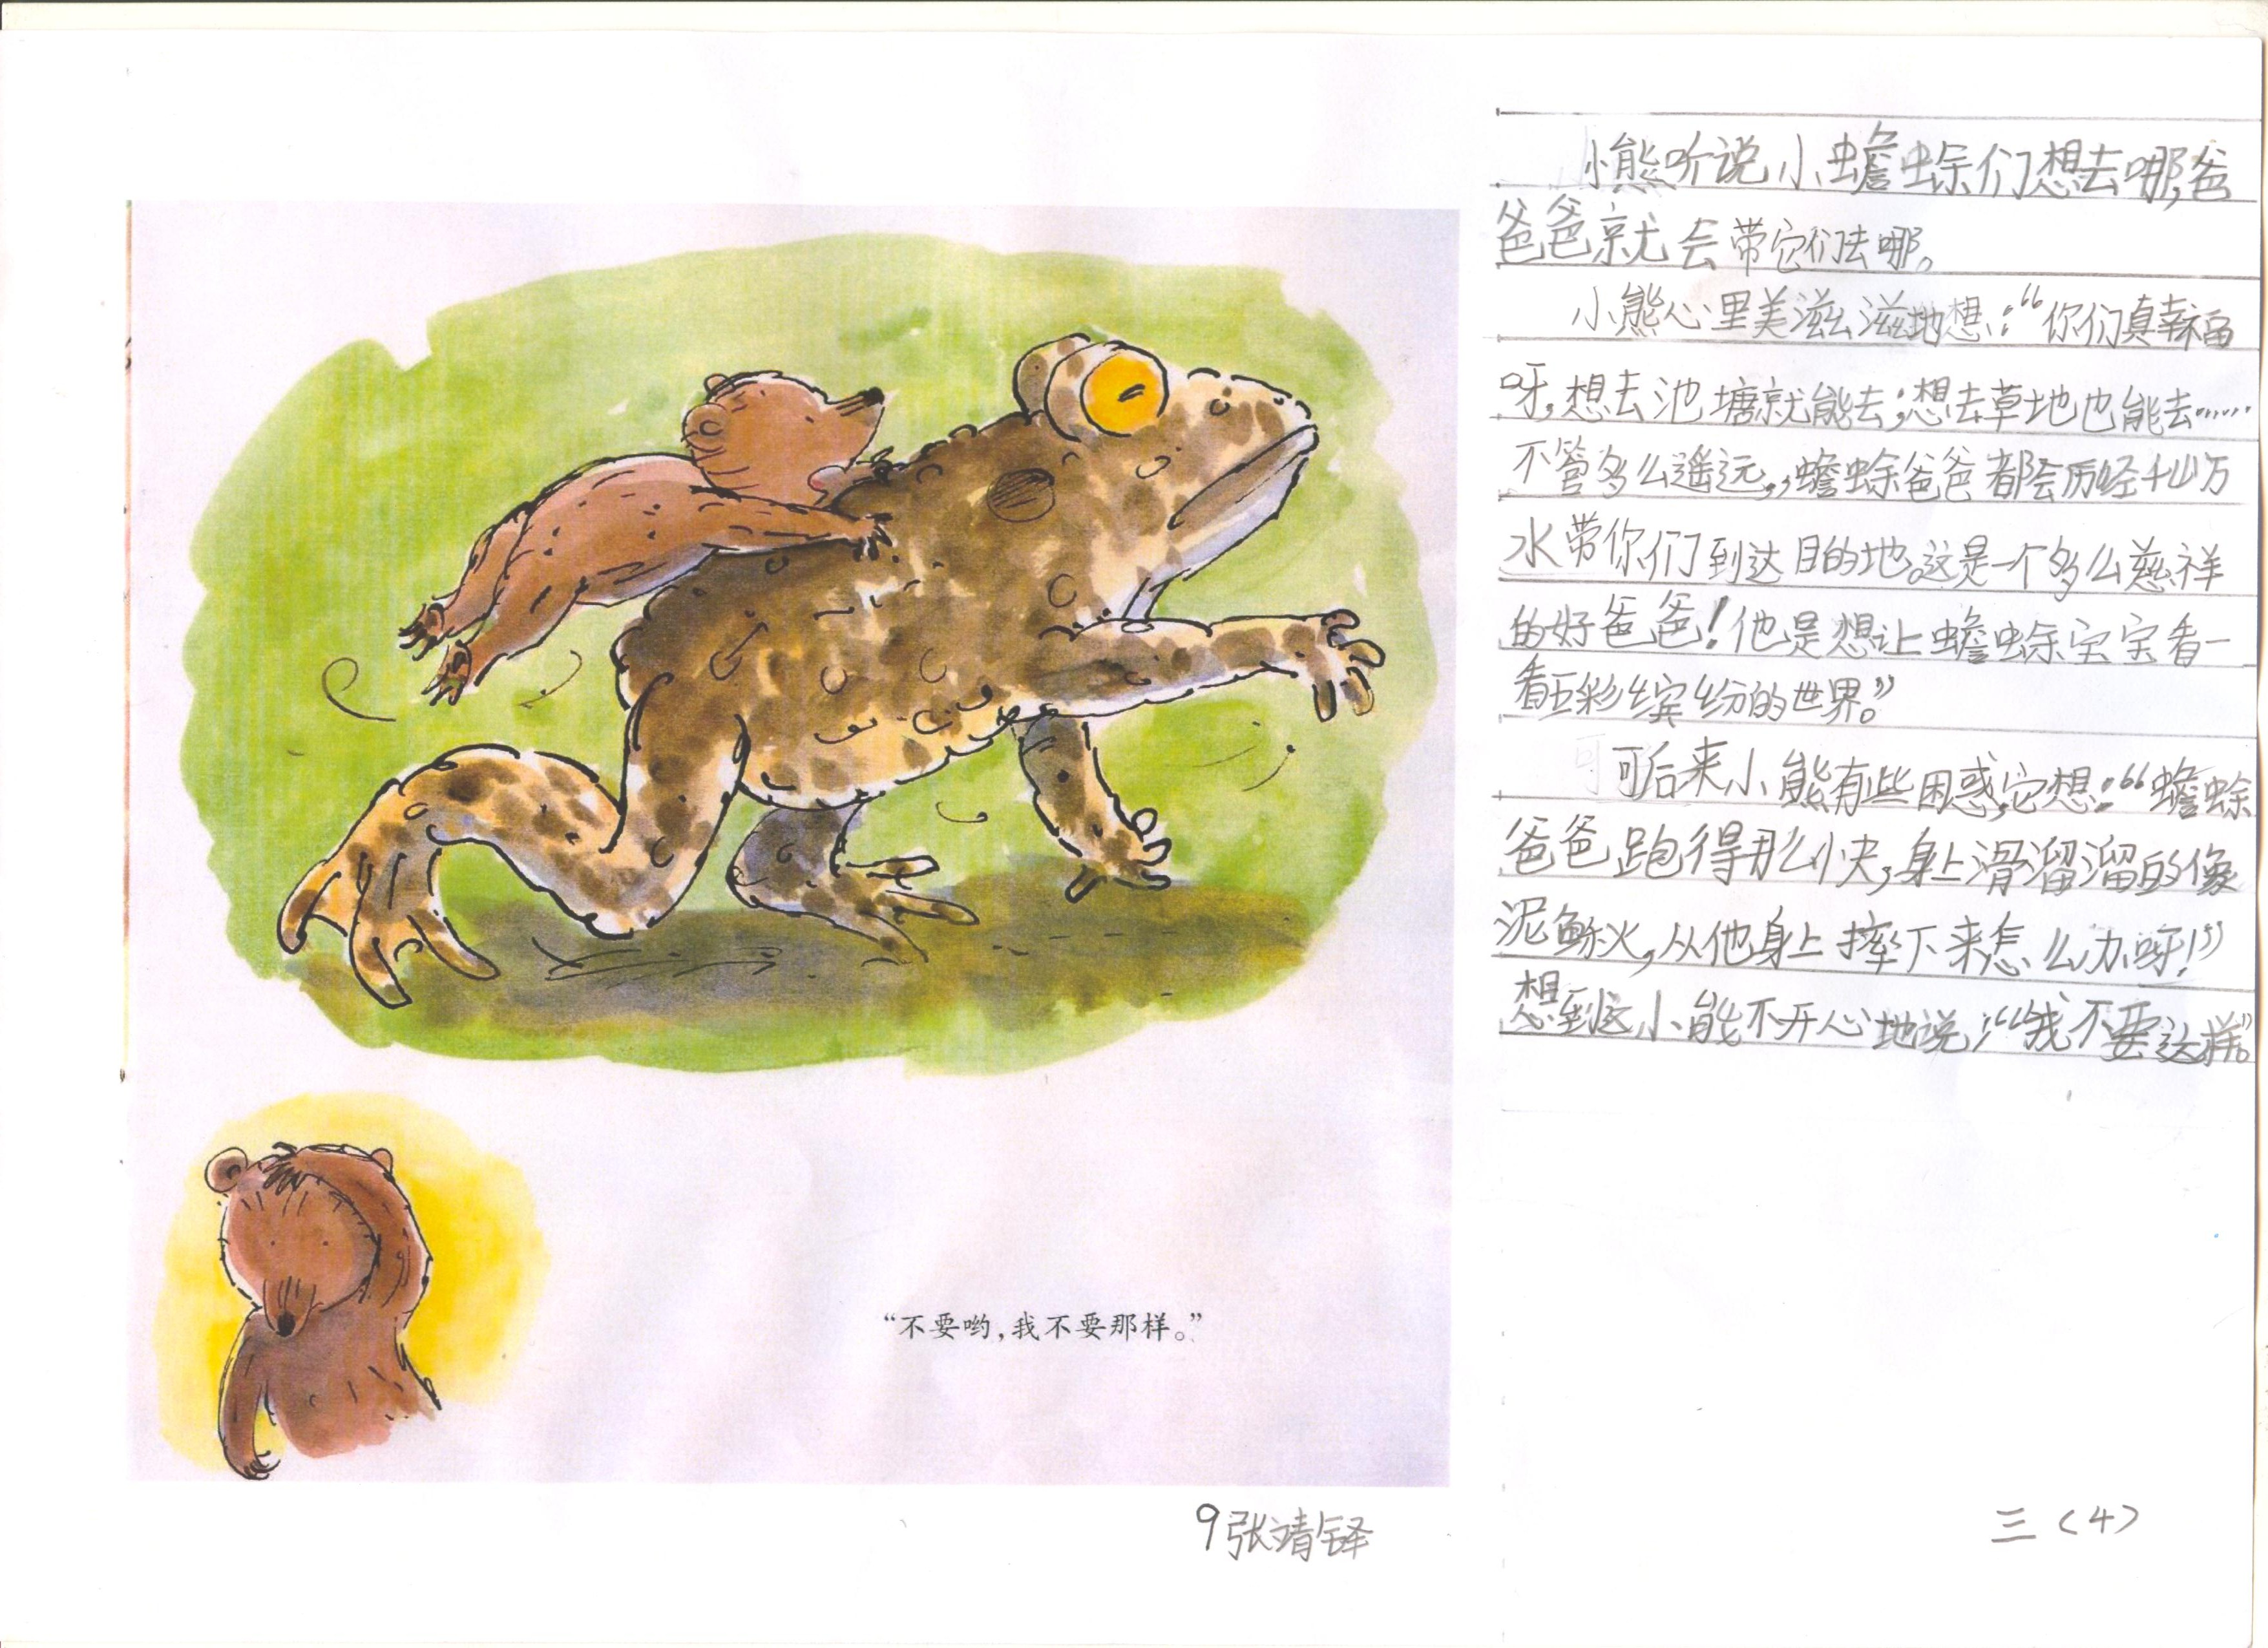 小熊听说小蟾蜍们想去哪,爸
爸爸就会带它们去哪。
小熊心里美滋滋地想:“你们真幸福
呀,想去池塘就能去;想去草地也能去……
不管多么遥远,蟾蜍爸爸都会历经千山万
水带你们到达目的地。这是一个多么慈祥
的好爸爸!他是想让蟾蜍宝宝看一
看五彩缤纷的世界。”
可后来小熊有些困惑,它想:“蟾蜍
爸爸跑得那么快,身上滑溜溜的像
泥鳅,从他身上摔下来怎么办呀!”
想到这小能不开心地说:“我不要这样”。
“不要哟,我不要那样。”
9张靖铎
三(4)